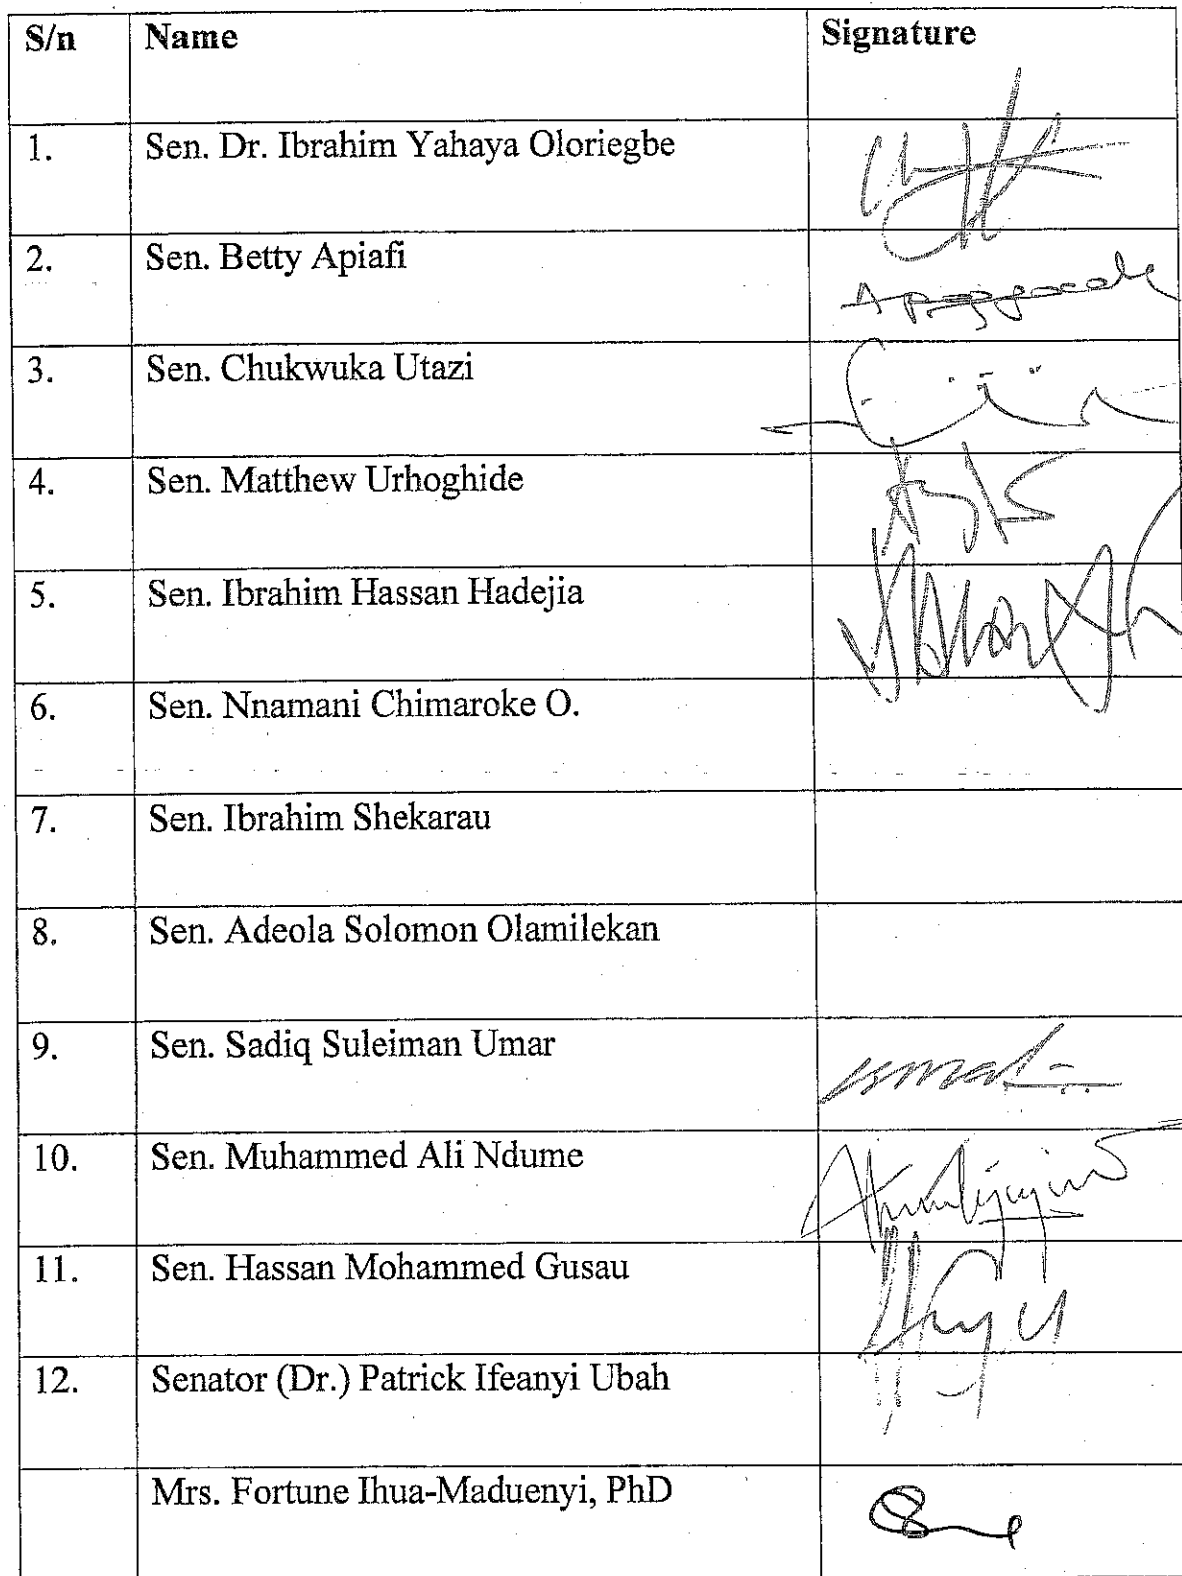 S/n Name Signature
1. Sen. Dr. Ibrahim Yahaya Oloriegbe
2. Sen. Betty Apiafi
3. Sen. Chukwuka Utazi
4. Sen. Matthew Urhoghide
5. Sen. Ibrahim Hassan Hadejia
6. Sen. Nnamani Chimaroke O.
7. Sen. Ibrahim Shekarau
8. Sen. Adeola Solomon Olamilekan
9. Sen. Sadiq Suleiman Umar
10. Sen. Muhammed Ali Ndume
11. Sen. Hassan Mohammed Gusau
12. Senator (Dr.) Patrick Ifeanyi Ubah
Mrs. Fortune Ihua-Maduenyi, PhD